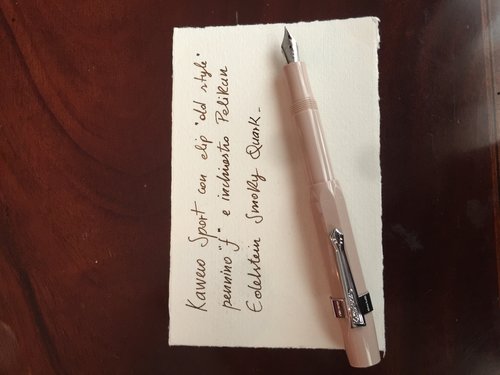 Kaweco Sport con clip "old style"
pennino "f" e inchiostro Pelikan
Edelstein Smoky Quark.